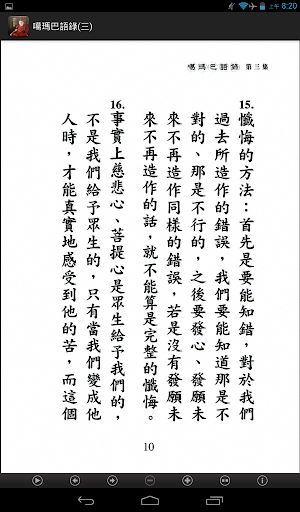 上午 8:20
噶瑪巴語錄(三)
噶瑪巴語錄 第三集
15.
懺悔的方法：首先是要能知錯，對於我們
過去所造作的錯誤，我們要能知道那是不
對的、那是不行的，之後要發心、發願未
來不再造作同樣的錯誤，若是沒有發願未
來不再造作的話，就不能算是完整的懺悔。
16.
事實上慈悲心、菩提心是眾生給予我們的，
不是我們給予眾生的，只有當我們變成他
人時，才能真實地感受到他的苦，而這個
10